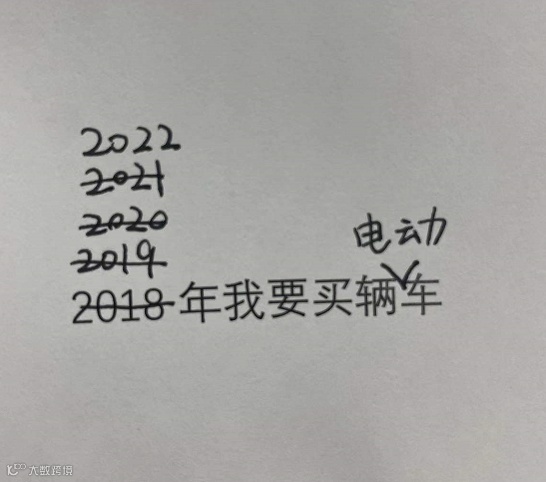 2022
2021
2020
2019
电动
2018年我要买辆车
大数跨境